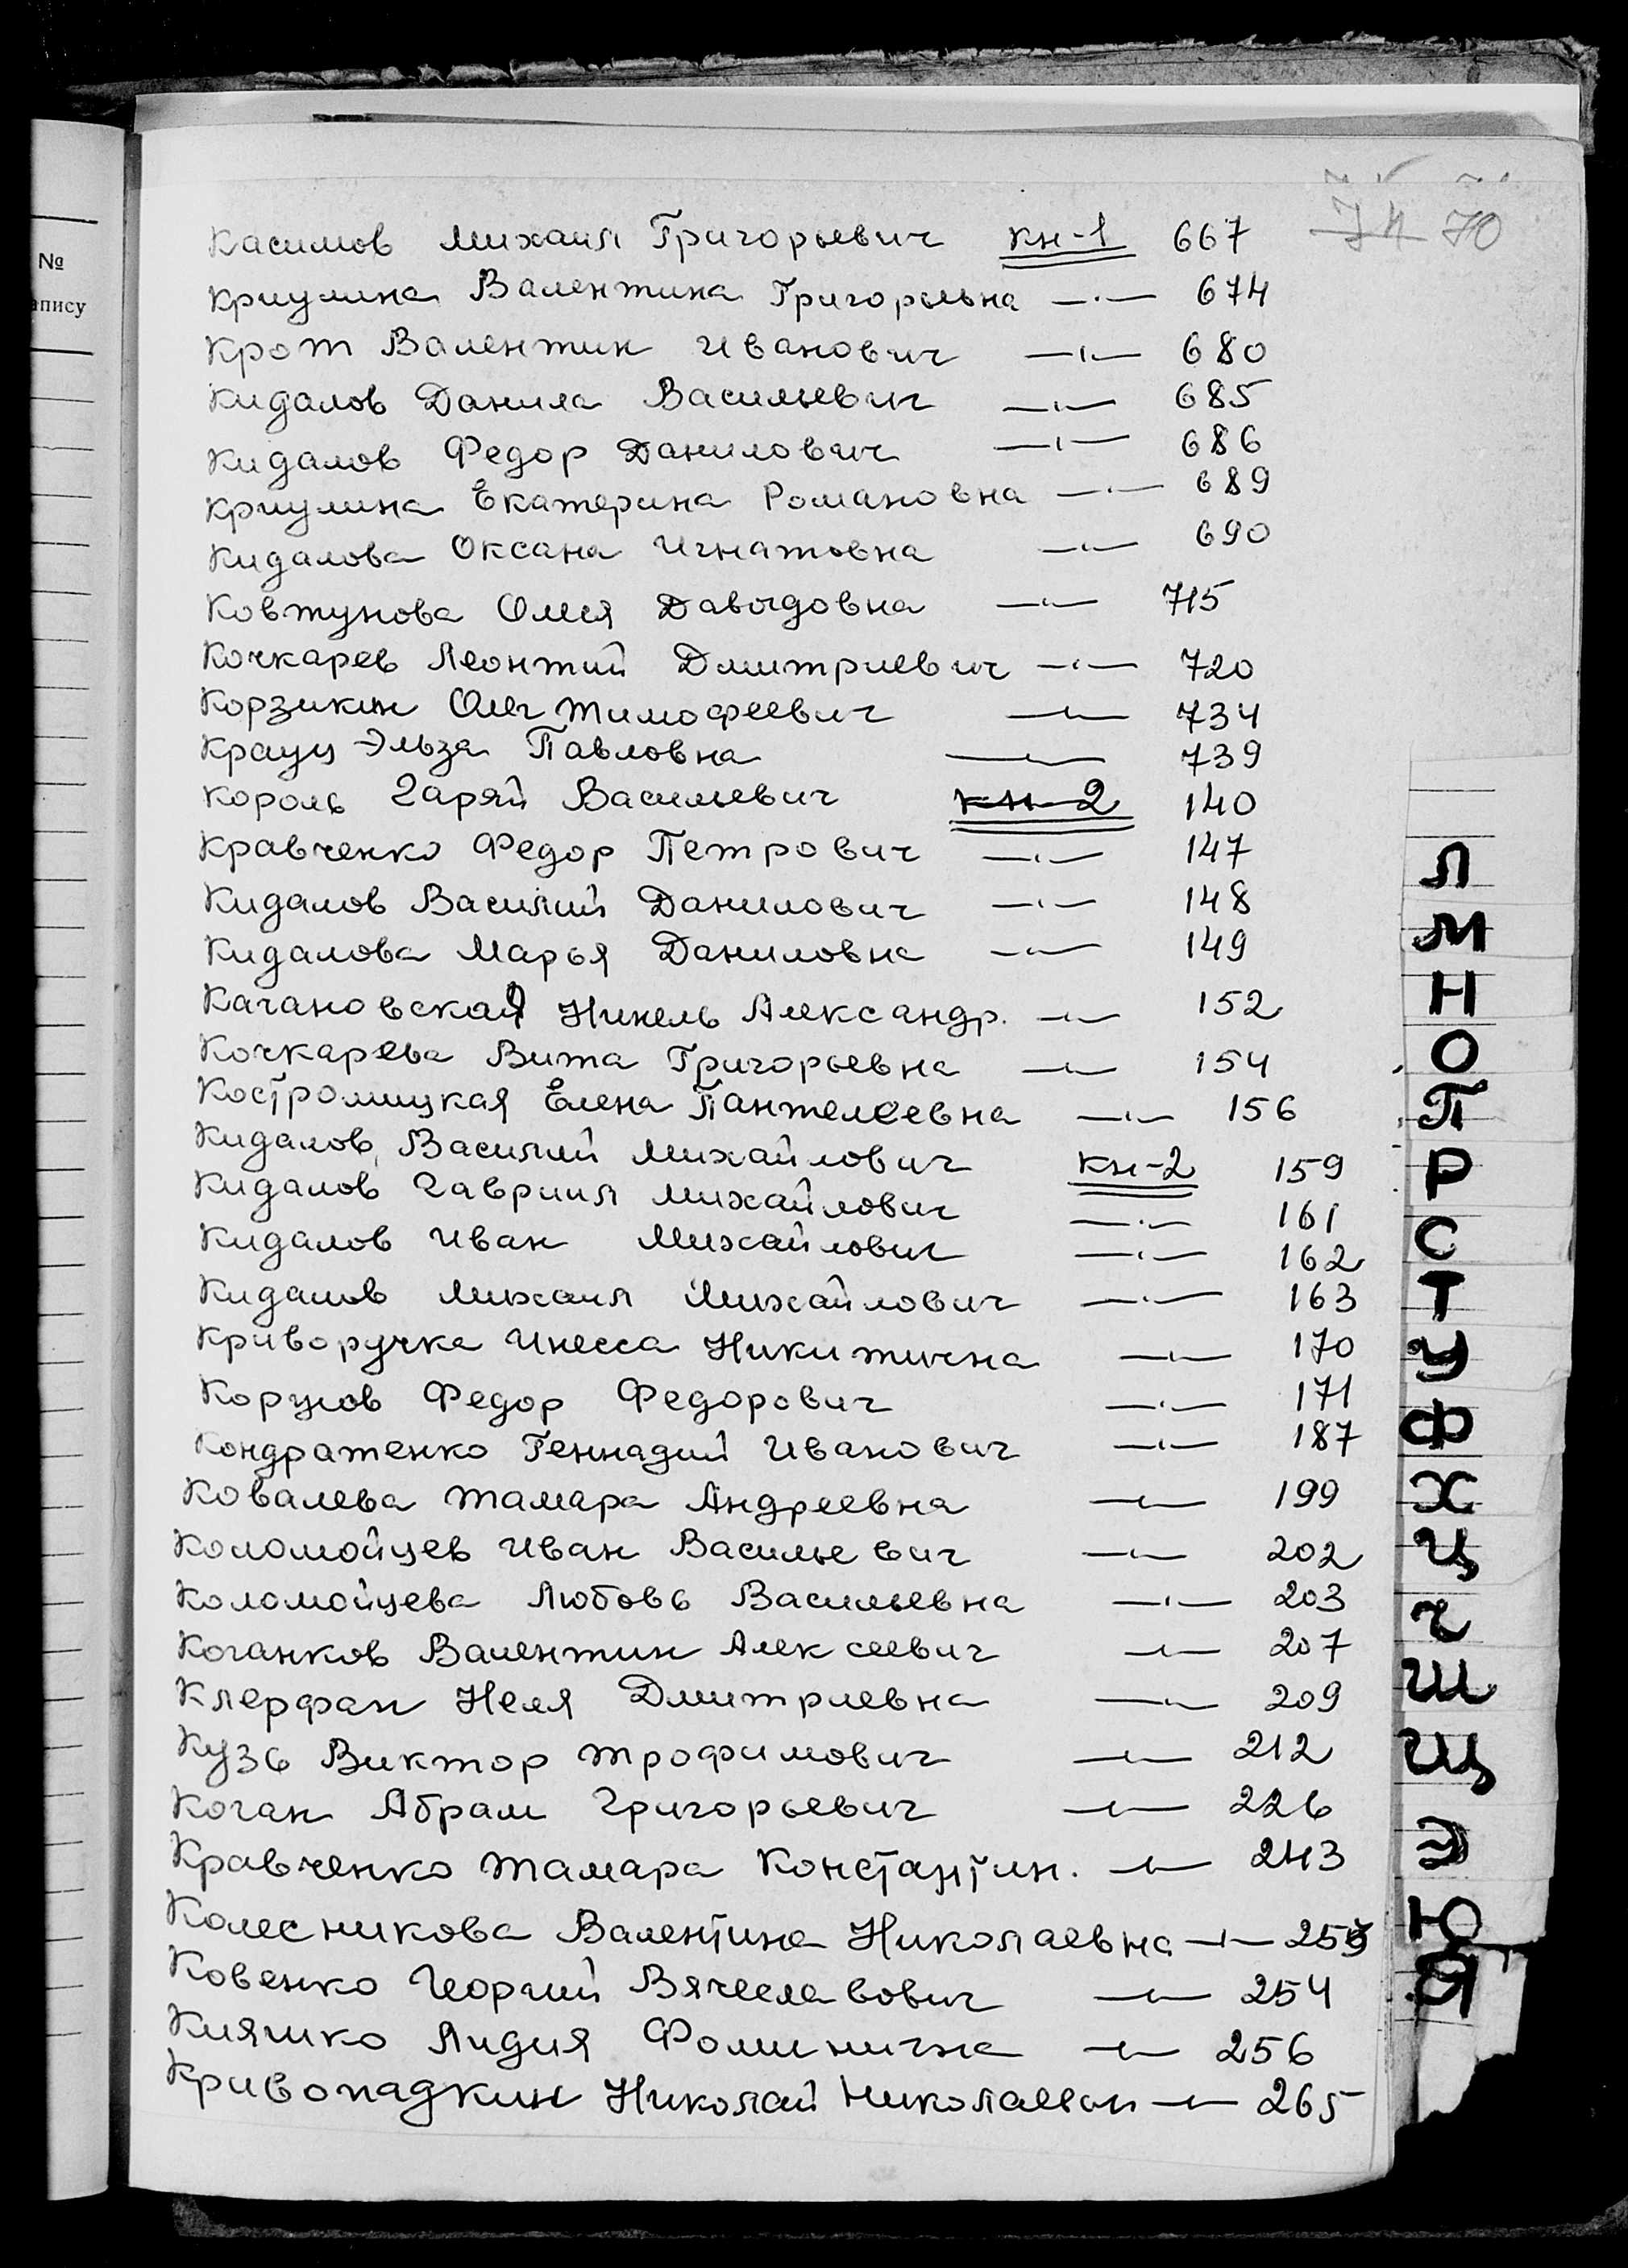 №
апису
74 70
Касимов Михаил Григорьевич кн-1 667
Криулина Валентина Григорьевна —·— 674
Крот Валентин Иванович —·— 680
Кидалов Данила Васильевич —·— 685
Кидалов Федор Данилович —·— 686
Криулина Екатерина Романовна —·— 689
Кидалова Оксана Игнатовна —·— 690
Ковтунова Олея Давыдовна —·— 715
Кочкарев Леонтий Дмитриевич —·— 720
Корзикин Олег Тимофеевич —·— 734
Крауц Эльза Павловна —·— 739
Король Гаряй Васильевич кн-2 140
Кравченко Федор Петрович —·— 147
Кидалов Василий Данилович —·— 148
Кидалова Марья Даниловна —·— 149
Качановская Нинель Александр. —·— 152
Кочкарева Вита Григорьевна —·— 154
Костромицкая Елена Пантелеевна —·— 156
Кидалов Василий Михайлович кн-2 159
Кидалов Гавриил Михайлович —·— 161
Кидалов Иван Михайлович —·— 162
Кидалов Михаил Михайлович —·— 163
Криворучка Инесса Никитична —·— 170
Корунов Федор Федорович —·— 171
Кондратенко Геннадий Иванович —·— 187
Ковалева Тамара Андреевна —·— 199
Коломойцев Иван Васильевич —·— 202
Коломойцева Любовь Васильевна —·— 203
Коганков Валентин Алексеевич —·— 207
Клерфан Неля Дмитриевна —·— 209
Кузь Виктор Трофимович —·— 212
Коган Абрам Григорьевич —·— 226
Кравченко Тамара Константин. —·— 243
Колесникова Валентина Николаевна —·— 253
Ковенко Георгий Вячеславович —·— 254
Кияшко Лидия Фоминична —·— 256
Кривопадкин Николай Николаевич —·— 265
Л
М
Н
О
П
Р
С
Т
У
Ф
Х
Ц
Ч
Ш
Щ
Э
Ю
Я